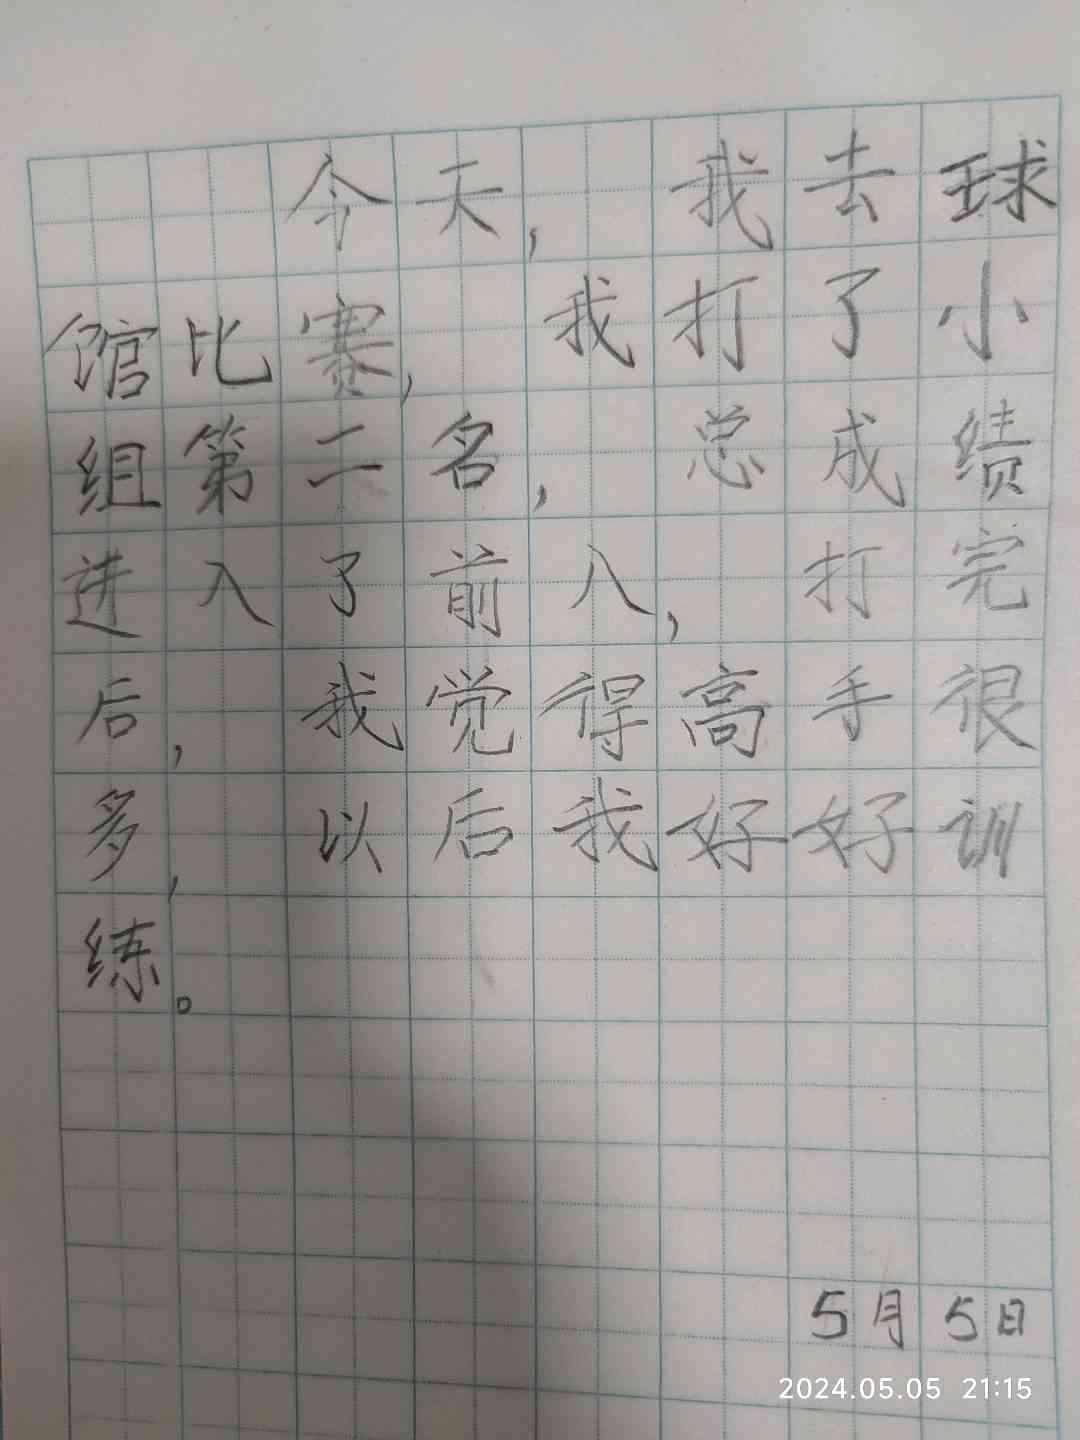 今天,我去球
馆比赛,我打了小
组第二名,总成绩
进入了前八,打完
后,我觉得高手很
多,以后我好好训
练。
5月5日
2024.05.05 21:15